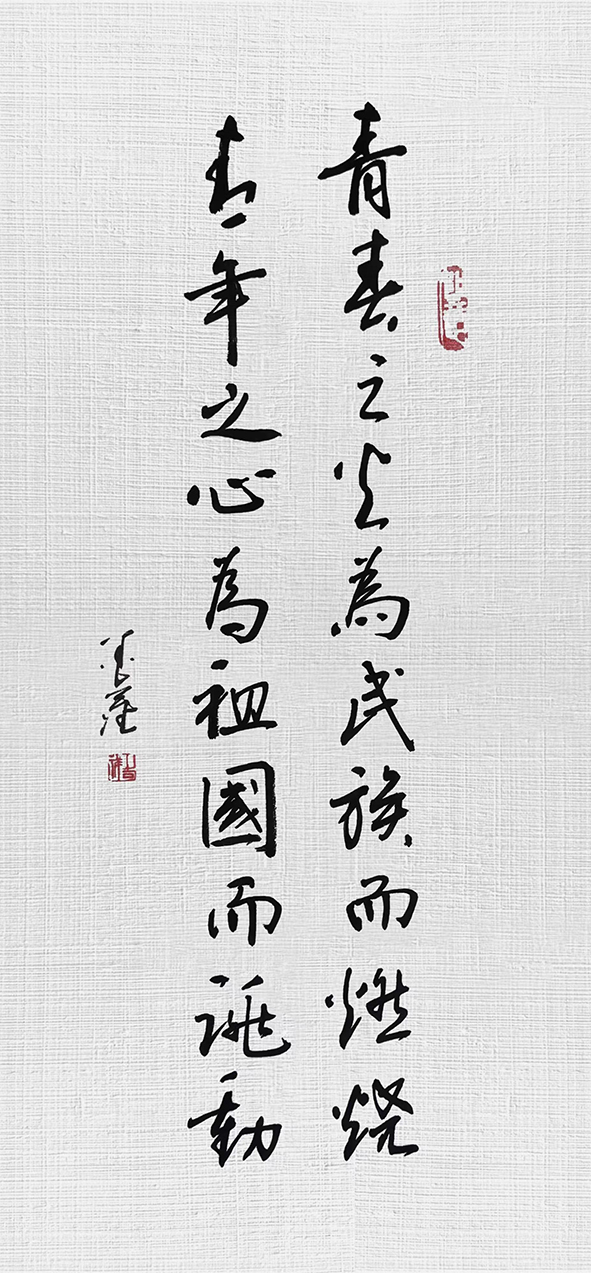 青春之光為民族而燃燒
青年之心為祖國而跳動